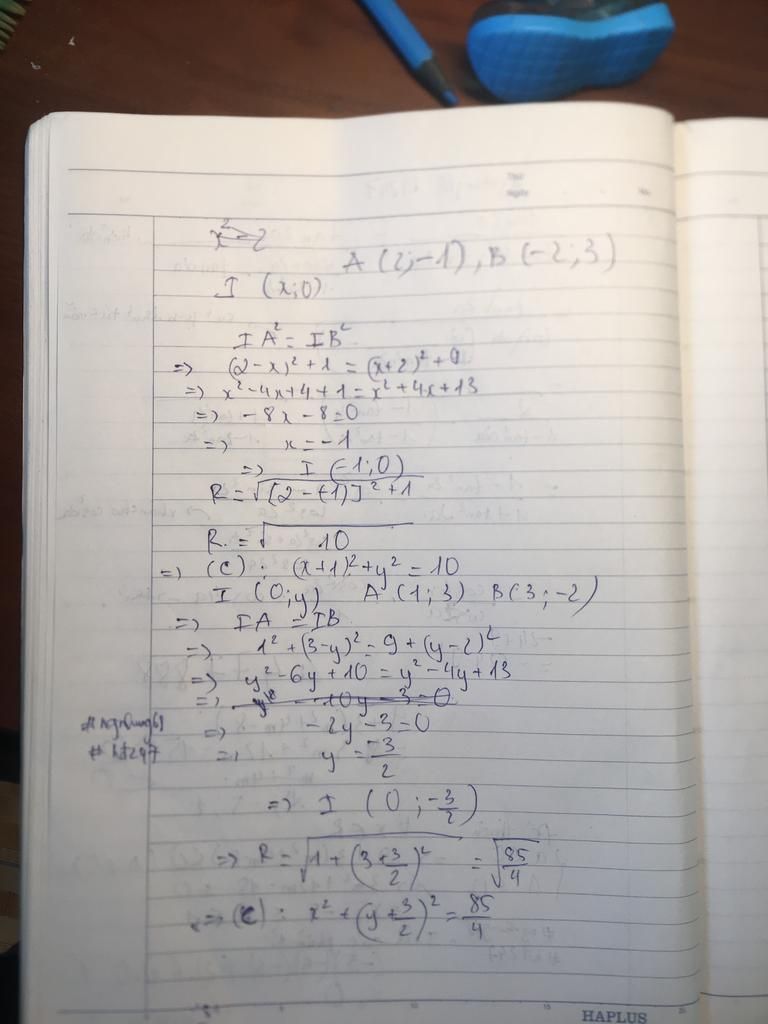 x² - 2
A (2;-1), B (-2;3)
I (x;0)
IA² = IB²
=> (2-x)² + 1 = (x+2)² + 9
=> x² - 4x + 4 + 1 = x² + 4x + 13
=> -8x - 8 = 0
=> x = -1
=> I (-1;0)
R = √[2-(-1)]² + 1
R = √10
=> (C) : (x+1)² + y² = 10
I (0;y) A (1;3) B(3;-2)
=> IA = IB
=> 1² + (3-y)² = 9 + (y-2)²
=> y² - 6y + 10 = y² - 4y + 13
=> y² - 10y - 3 = 0
=> -2y - 3 = 0
=> y = -3/2
=> I (0; -3/2)
=> R = √1 + (3+3/2)² = √85/4
=> (C) : x² + (y+3/2)² = 85/4
HAPLUS